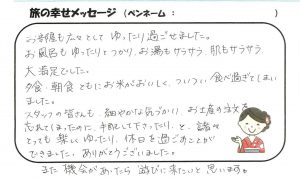 旅の幸せメッセージ (ペンネーム: )
お部屋も広々としてゆったり過ごせました。
お風呂もゆったりとつかり、お湯もサラサラ、肌もサラサラ、
大満足でした。
夕食、朝食ともにお米がおいしく、ついつい食べ過ぎてしまい
ました。
スタッフの皆さんも、細やかな気づかい、お土産の注文を
忘れてしまったのに、手配して下さったり、と、諸々
とっても楽しくゆったり、休日を過ごすことが
できました。ありがとうございました。
また機会があったら遊びに来たいと思います。